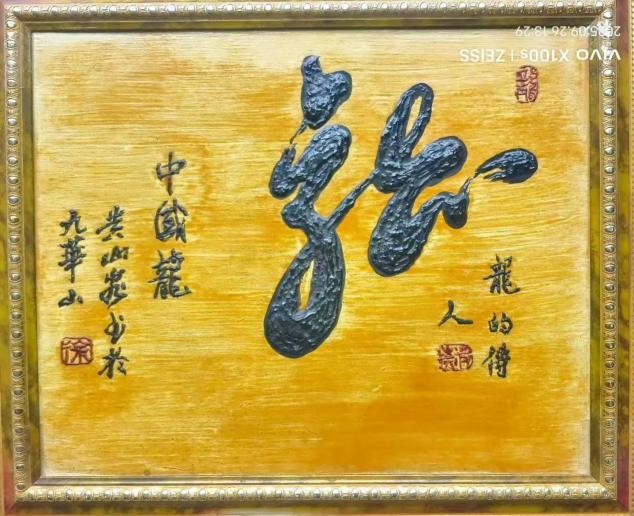 龍的傳
人
龍
中國龍
山书於
九華山
徐
vivo X100s | ZEISS
2025.09.26 13:29